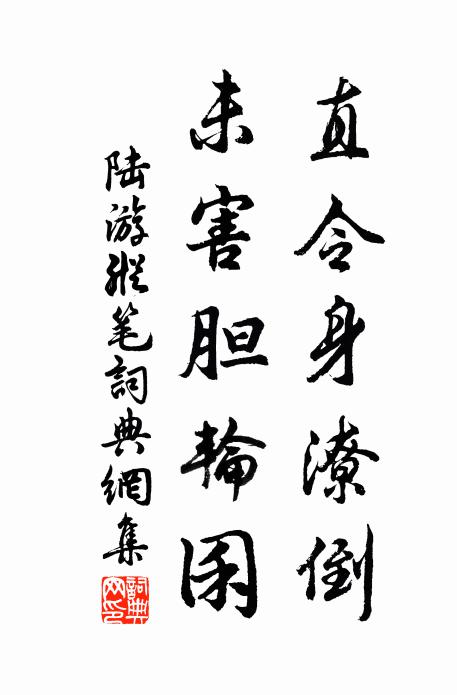 直令身潦倒
未害胆輪囷
陆游縱笔詞典網集
詞典网印